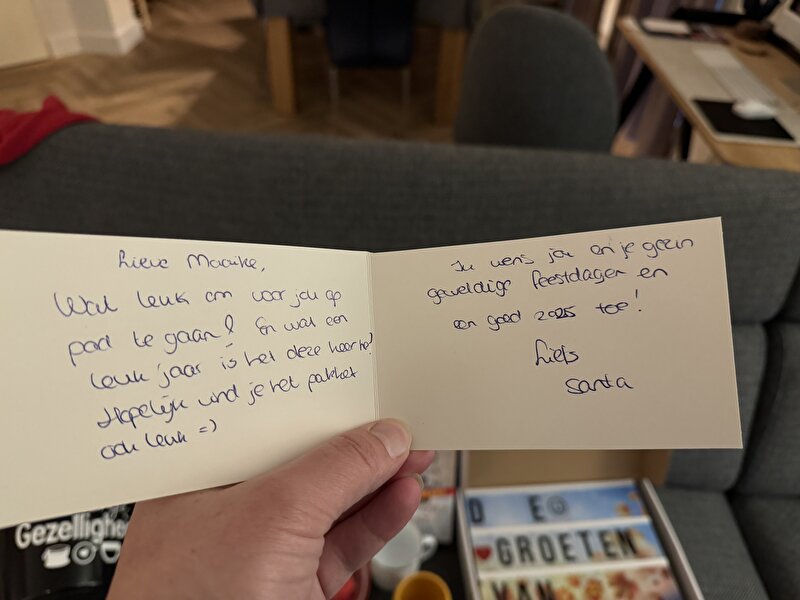 Lieve Maaike,
Wat leuk om voor jou op
pad te gaan! En wat een
leuk jaar is het deze keer he!
Hopelijk vind je het pakket
ook leuk =)
Ik wens jou en je gezin
geweldige feestdagen en
een goed 2025 toe!
Liefs
Santa
Gezelligh
D E
GROETEN
VAN